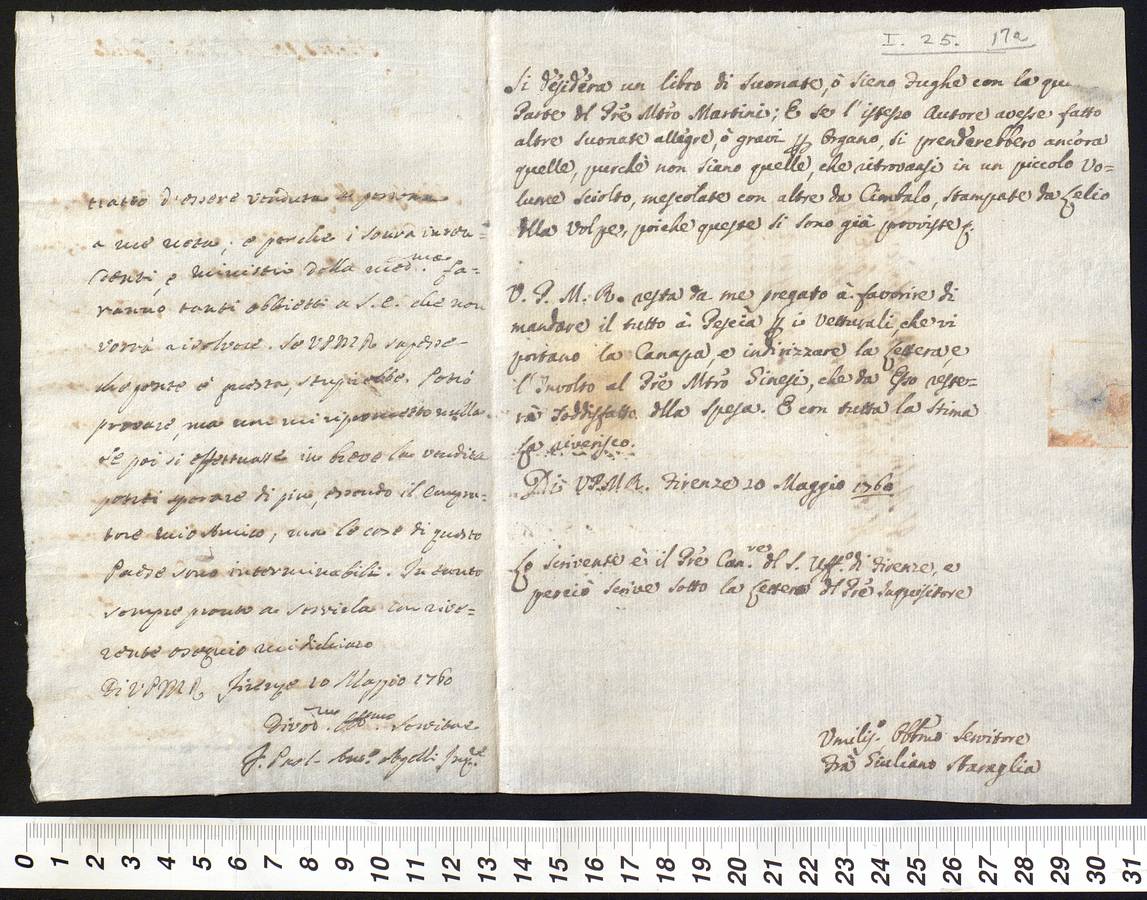 tratto d'essere venduta a persona
a me nota; e perche i sovrainten=
denti, e Ministri della med.ma fa=
ranno tanti obbietti a S. E. che non
vorrà risolvere. Se V P M R sapesse
che gente è questa, stupirebbe. Potrò
provare, ma non mi riprometto nulla.
Se poi si effettuasse in breve la vendita
potrei sperare di più, essendo il Compra=
tore mio Amico, ma le cose di questo
Paese sono interminabili. Intanto
sempre pronto a servirla con rive=
rente ossequio mi dichiaro
Di V P M R Firenze 20 Maggio 1760
Divot.mo Obb.mo Servitore
F. Paol. Ant.o Agelli Inq.re
I. 25. 17a
Si desidera un libro di Suonate, ò sieno Fughe con la
Parte del Prē Mtrō Martini; E se l'istesso Autore avesse fatto
altre suonate allegre, ò gravi p Organo, si prenderebbero ancora
quelle, purche non siano quelle, che ritrovansi in un piccolo Vo=
lume sciolto, mescolate con altre da Cimbalo, stampate da Lelio
dlla Volpe, poiche queste si sono già provviste.
V. P. M. R. resta da me pregato à favorire di
mandare il tutto à Pescia p i Vetturali, che vi
portano la Canapa, e indirizzare la Lettera, e
l'Involto al Prē Mtrō Ginesi, che da Esso reste=
rà soddisfatto dlla spesa. E con tutta la stima
La riverisco.
Di V.P.M.R. Firenze 20 Maggio 1760
Lo scrivente è il Prē Can.re dl S. Uff.o di Firenze, e
perciò scrive sotto la Lettera dl Prē Inquisitore
Umilis.o Obb̄mo Servitore
Frà Giuliano Sbaraglia
0 1 2 3 4 5 6 7 8 9 10 11 12 13 14 15 16 17 18 19 20 21 22 23 24 25 26 27 28 29 30 31